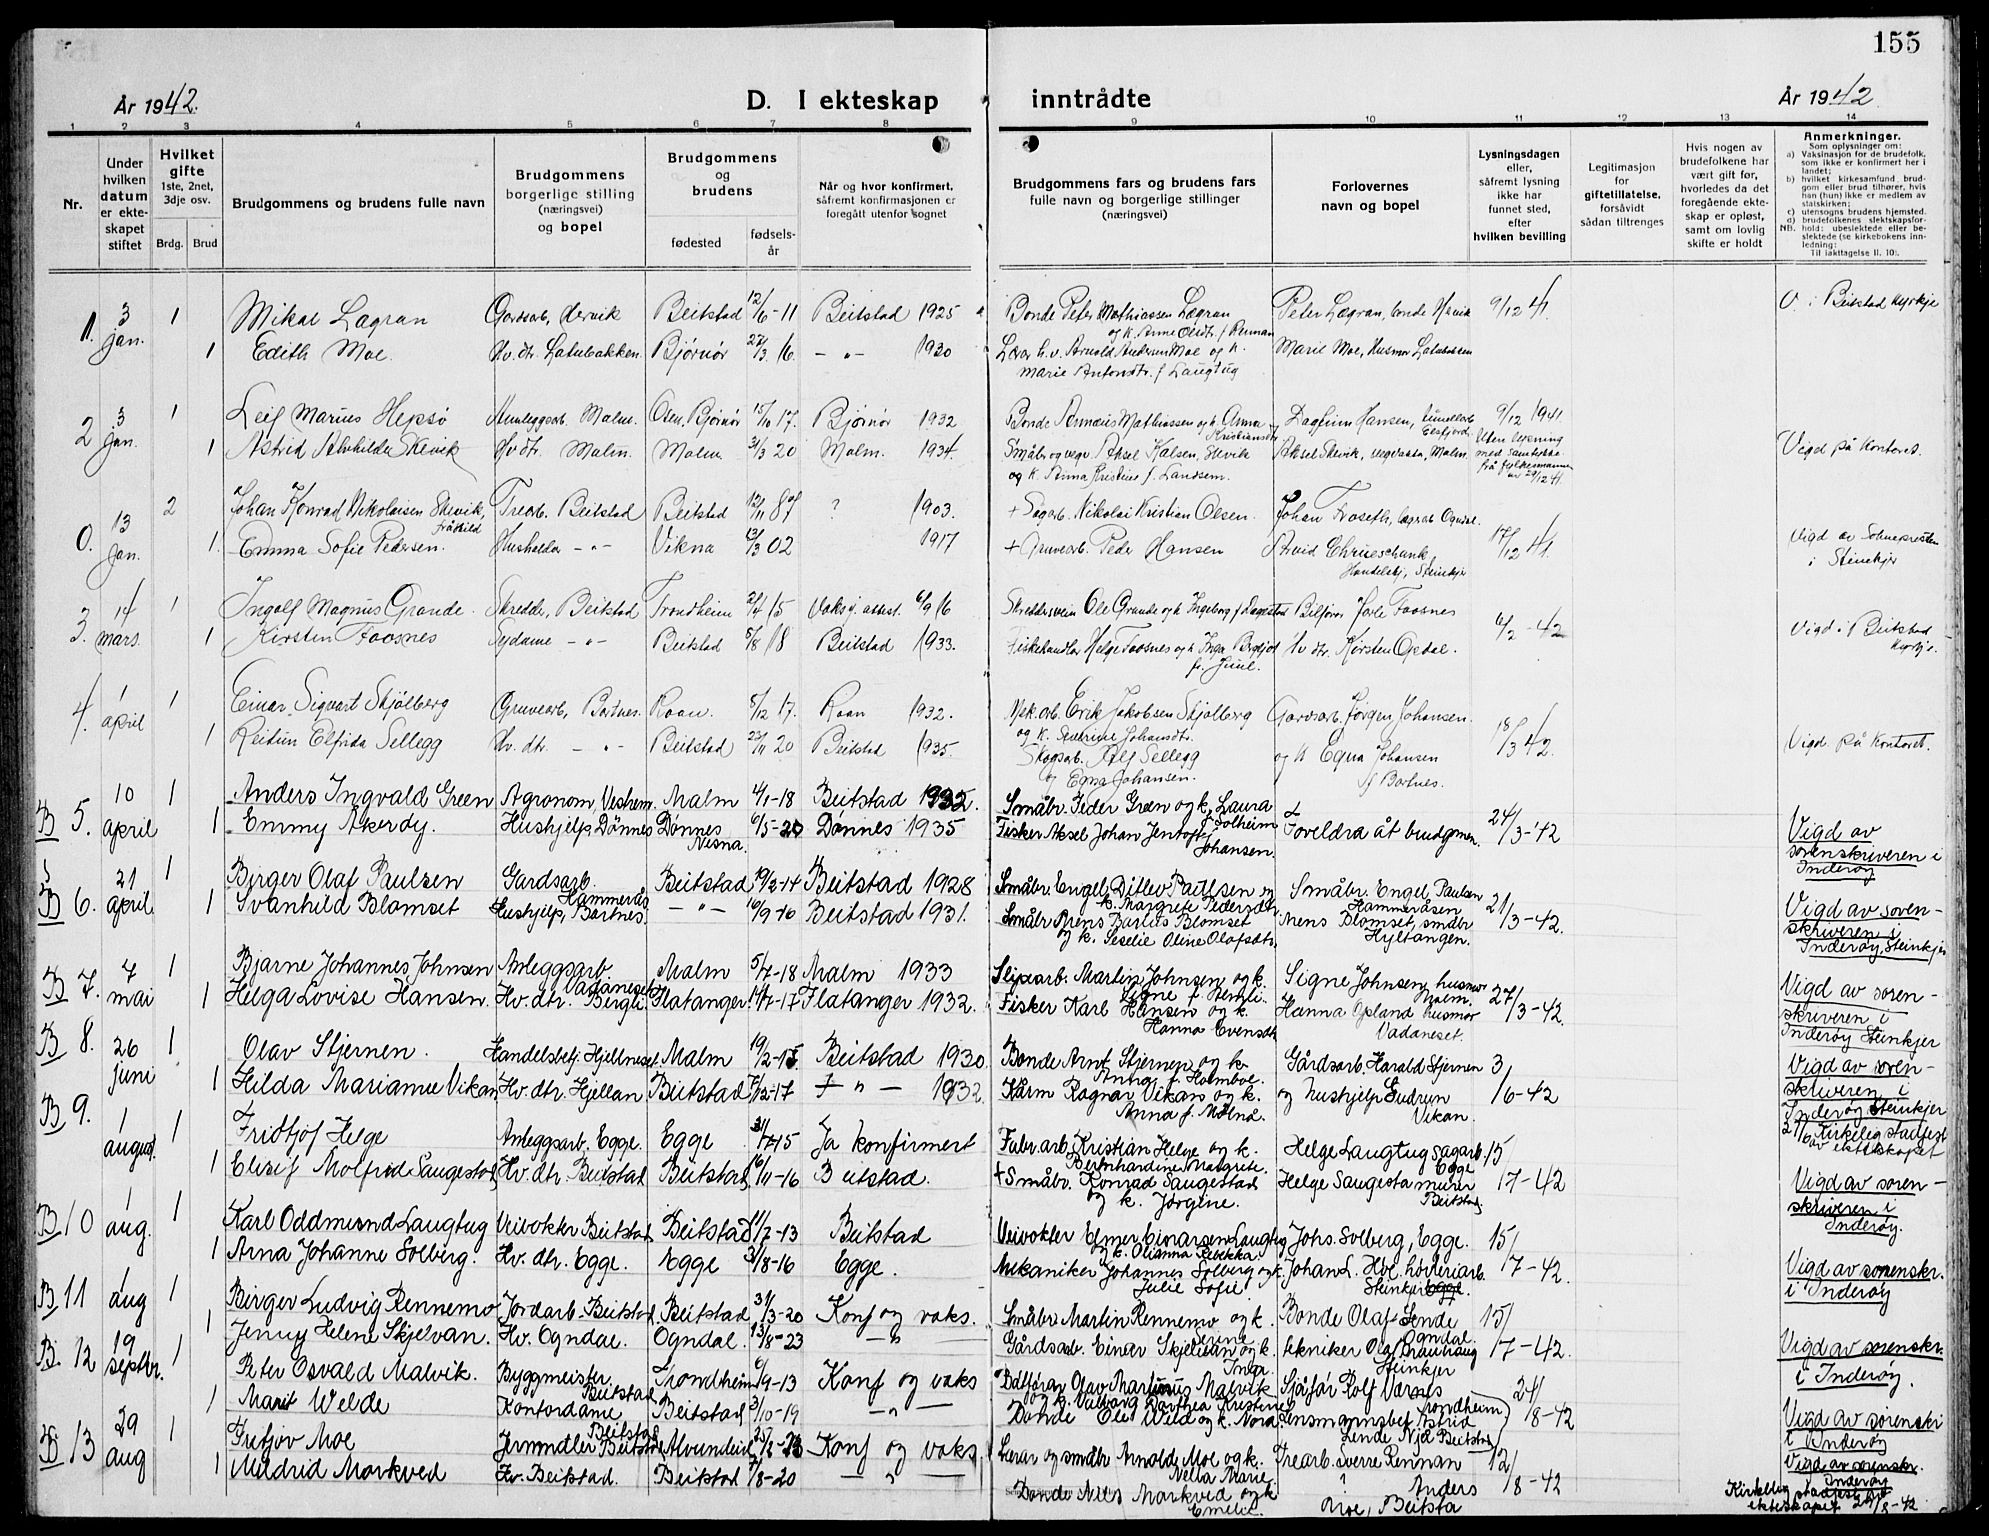 155
År 1942.
D. I ekteskap inntrådte
År 1942
1 2 3 4 5 6 7 8 9 10 11 12 13 14
Nr.
Under hvilken datum er ekteskapet stiftet
Hvilket gifte 1ste, 2net, 3dje osv.
Brdg. Brud
Brudgommens og brudens fulle navn
Brudgommens borgerlige stilling (næringsvei) og bopel
Brudgommens og brudens
fødested
fødselsår
Når og hvor konfirmert, såfremt konfirmasjonen er foregått utenfor sognet
Brudgommens fars og brudens fars fulle navn og borgerlige stillinger (næringsvei)
Forlovernes navn og bopel
Lysningsdagen eller, såfremt lysning ikke har funnet sted, efter hvilken bevilling
Legitimasjon for giftetillatelse, forsåvidt sådan tiltrenges
Hvis nogen av brudefolkene har vært gift før, hvorledes da det foregående ekteskap er opløst, samt om lovlig skifte er holdt
Anmerkninger.
Som oplysninger om:
a) Vaksinasjon for de brudefolk, som ikke er konfirmert her i landet;
b) hvilket kirkesamfund, brudgom eller brud tilhører, hvis han (hun) ikke er medlem av statskirken;
c) utensogns brudens hjemsted.
d) brudefolkenes slektskapsforhold: ubeslektede eller beslektede (se kirkebokens innledning:
NB. Til iakttagelse II. 10).
1. 3 jan. 1 Mikal Lagran Gardsarb, Hervik Beitstad 12/6-11 Beitstad 1925 Bonde Peter Mathiassen Lægran Peter Lægran, bonde Hervik 9/12 41. V. i Beitstad kyrkje
1 Edith Moe. Hv. dtr. Bjørnør 27/3 16. - " - 1930 Lærer h.v. Arnold Andersen Moe og k. Marie Antonsdtr. f. Laugtug Marie Moe, Husmor
2 3 jan. 1 Leif Marius Hepsø Anleggsarb. Malm. Osen, Bjørnør 15/10 17. Bjørnør 1932 Bonde Annæus Mathiassen og k. Anna Kristiansen Dagfinn Hansen, 9/12 1941. Uten lysning med samtykke frå fylkesmannen av 29/12 41
1 Astrid Alvhilde Skevik Hv dtr. Malm. Malm. 31/3 20 Malm. 1934. Aksel Skevik, Malm. Vigd på Kontoret.
og k. Anna Kristine f. Landsem.
0. 13 jan. 2 Johan Konrad Nikolaisen Skevik, fråskild Trearb. Beitstad Beitstad ? 1903. + Sagarb. Nikolai Kristian Olsen. Johan Fraseth, Ogndal. 17/12 41.
1. Emma Sofie Pedersen. Husholder - " - Vikna 13/3 02 1917 + Gruvearb. Peder Hansen Handelsbj, Steinkjer Vigd av Soknepresten i Steinkjer
3. 14 mars. 1 Ingolf Magnus Grande. Skredder, Beitstad Trondheim 21/4 15 Vaksj. attest. 6/9 16 Skreddersvein Ole Grande og k Ingeborg f. Bilfører Jarle Faasnes 6/2 - 42
1 Kirsten Faasnes Sydame - " - Beitstad 5/8 18 Beitstad 1933. Fiskehandlar Helge Faasnes og k Inga Bergljot f. Juul. Hv dtr. Kirsten Opdal. Vigd i Beitstad kyrkje.
4. 1 april 1 Einar Sigvart Skjølberg Gruvearb, Bartnes. Roan. 8/12 17. Roan 1932. Mek. arb. Erik Jakobsen Skjølberg og k. Severine Johansdtr. Gardsarb. Jørgen Johansen. 18/3 42.
1 Reidun Elfrida Sellegg Hv. dtr. - " - Beitstad 23/11 20 Beitstad 1935. Skogsarb. Alf Sellegg og Egna Johansen. og k Egna Johansen f Bartnes. Vigd på kontoret.
B 5. 10 april 1 Anders Ingvald Green Agronom, Vestrem. Malm 4/1-18 Beitstad 1932. Småbr. Peder Green og k. Laura f. Solheim
1 Emmy Åkerøy. Hushjelp, Dønnes Dønnes Nesna 6/5-20 Dønnes 1935 Fisker Aksel Johan Jentoft Johansen. Foreldra åt brudgomen. 24/3-42 Vigd av sorenskriveren i Inderøy
B 6. 21 april 1 Birger Olaf Paulsen Gardsarb. Hammerås Beitstad 19/2-14 Beitstad 1928 Småbr. Engel Ditlev Paulsen og k. Margrete Pedersdtr. Småbr. Engel Paulsen Hammeråsen 21/3-42.
1 Svanhild Blomset Hushjelp, Bartnes. - " - 16/9-16 Beitstad 1931. Småbr. Jens Parlus Blomset og k. Seselie Oline Olafsdtr. Jens Blomset, småbr Hyltangen. Vigd av sorenskriveren i Inderøy, Steinkjer
B 7. 7 mai 1 Bjarne Johannes Johnsen Anleggsarb. Vadaneset Malm 5/7-18 Malm 1933 Slipearb. Martin Johnsen og k. Signe f. Hemli. Signe Johnsen, husmor Malm. 27/3-42.
1 Helga Lovise Hansen. Hv. dtr. Bergli. Flatanger. 11/7-17 Flatanger 1932. Fisker Karl Hansen og k. Hanna Evensdtr. Hanna Opland husmor Vadaneset. Vigd av sorenskriveren i Inderøy Steinkjer
B 8. 26 juni 1 Olav Stjernen. Handelsbetj. Hjellneset Malm 19/2-15 Beitstad 1930 Bonde Arnt Stjernen og k. Anna f. Holmboe. Gårdsarb. Harald Stjernen 3/6-42
1 Hilda Marianne Vikan Hv. dtr. Hjellan Beitstad 7/12-17 - " - 1932 Ragnar Vikan og k. Anna f. Molnd. og hushjelp Gudrun Vikan. Vigd av sorenskriveren i Inderøy Steinkjer 27/6 Kirkelig stadfest av ekteskapet
B 9. 1 august 1 Fridtjof Helge Anleggsarb. Egge. Egge 31/7-15 Ja konfirmert Fabr.arb. Kristian Helge og k. Bernhardine Margrete. Helge Laugtug sagarb. Egge 15/7-42
1 Elisif Molfrid Saugestad, Hv. dtr. Beitstad Beitstad, 16/11-16 Beitstad. + Småbr. Konrad Saugestad og k. Jørgine. Helge Saugestad murer Beitstad. Vigd av sorenskriveren i Inderøy.
B 10 1 aug. 1 Karl Oddmund Laugtug Veivokter Beitstad Beitstad 11/7-13 Beitstad Veivokter Elmer Einarsen Laugtug og k. Olianna Rebekka. Johs. Solberg, Egge. 15/7-42.
1 Arna Johanne Solberg. Hv. dtr. Egge. Egge 3/8-16 Egge. Mekaniker Johannes Solberg og k. Julie Sofie. Johan L. Hol. høvleriarb. Steinkjer. Vigd av sorenskr. i Inderøy
B 11 1 aug 1 Birger Ludvig Rennemo Jordarb. Beitstad Beitstad 31/3-20 Konf og vaks. Småbr. Martin Rennemo og k. Serine Bonde Olaf Lende Ogndal. 15/7-42.
1 Jenny Helene Skjelvan. Hv. Ogndal. Ogndal. 13/8-23 - " - Gårdsarb. Einar Skjelvan og k. Inga. tekniker Olaf Steinkjer Vigd av sorenskr. i Inderøy.
B. 12 19 septbr. 1 Peter Osvald Malvik. Byggmeister Beitstad Trondheim 6/9-13 Konf og vaks Båtfører Olav Martinus Malvik og k. Valborg Dorthea Kristine Sjåfør Rolf Værnes Trondheim 24/8-42
1 Marit Welde Kontordame Beitstad 3/10-19 - " - Bonde Ole Weld og k. Nora. Lensmannsbet. Astrid Lende Nja Beitstad Vigd av sorenskr i Inderøy
B 13 29 aug 1 Fritjov Moe Beitstad 23 Konf og vaks. Lærer og småbr Arnold Moe og k. Nella Marie Trearb. Sverre Rennan 12/8-42
1 Mildrid Markved Hv. Beitstad. Beitstad 7/8-20 - " - Bonde Nils Markved og k Emelie. Anders Moe, Beitsta Vigd av sorenskr. Inderøy
Kirkelig stadfest av ekteskapet 29/8-42